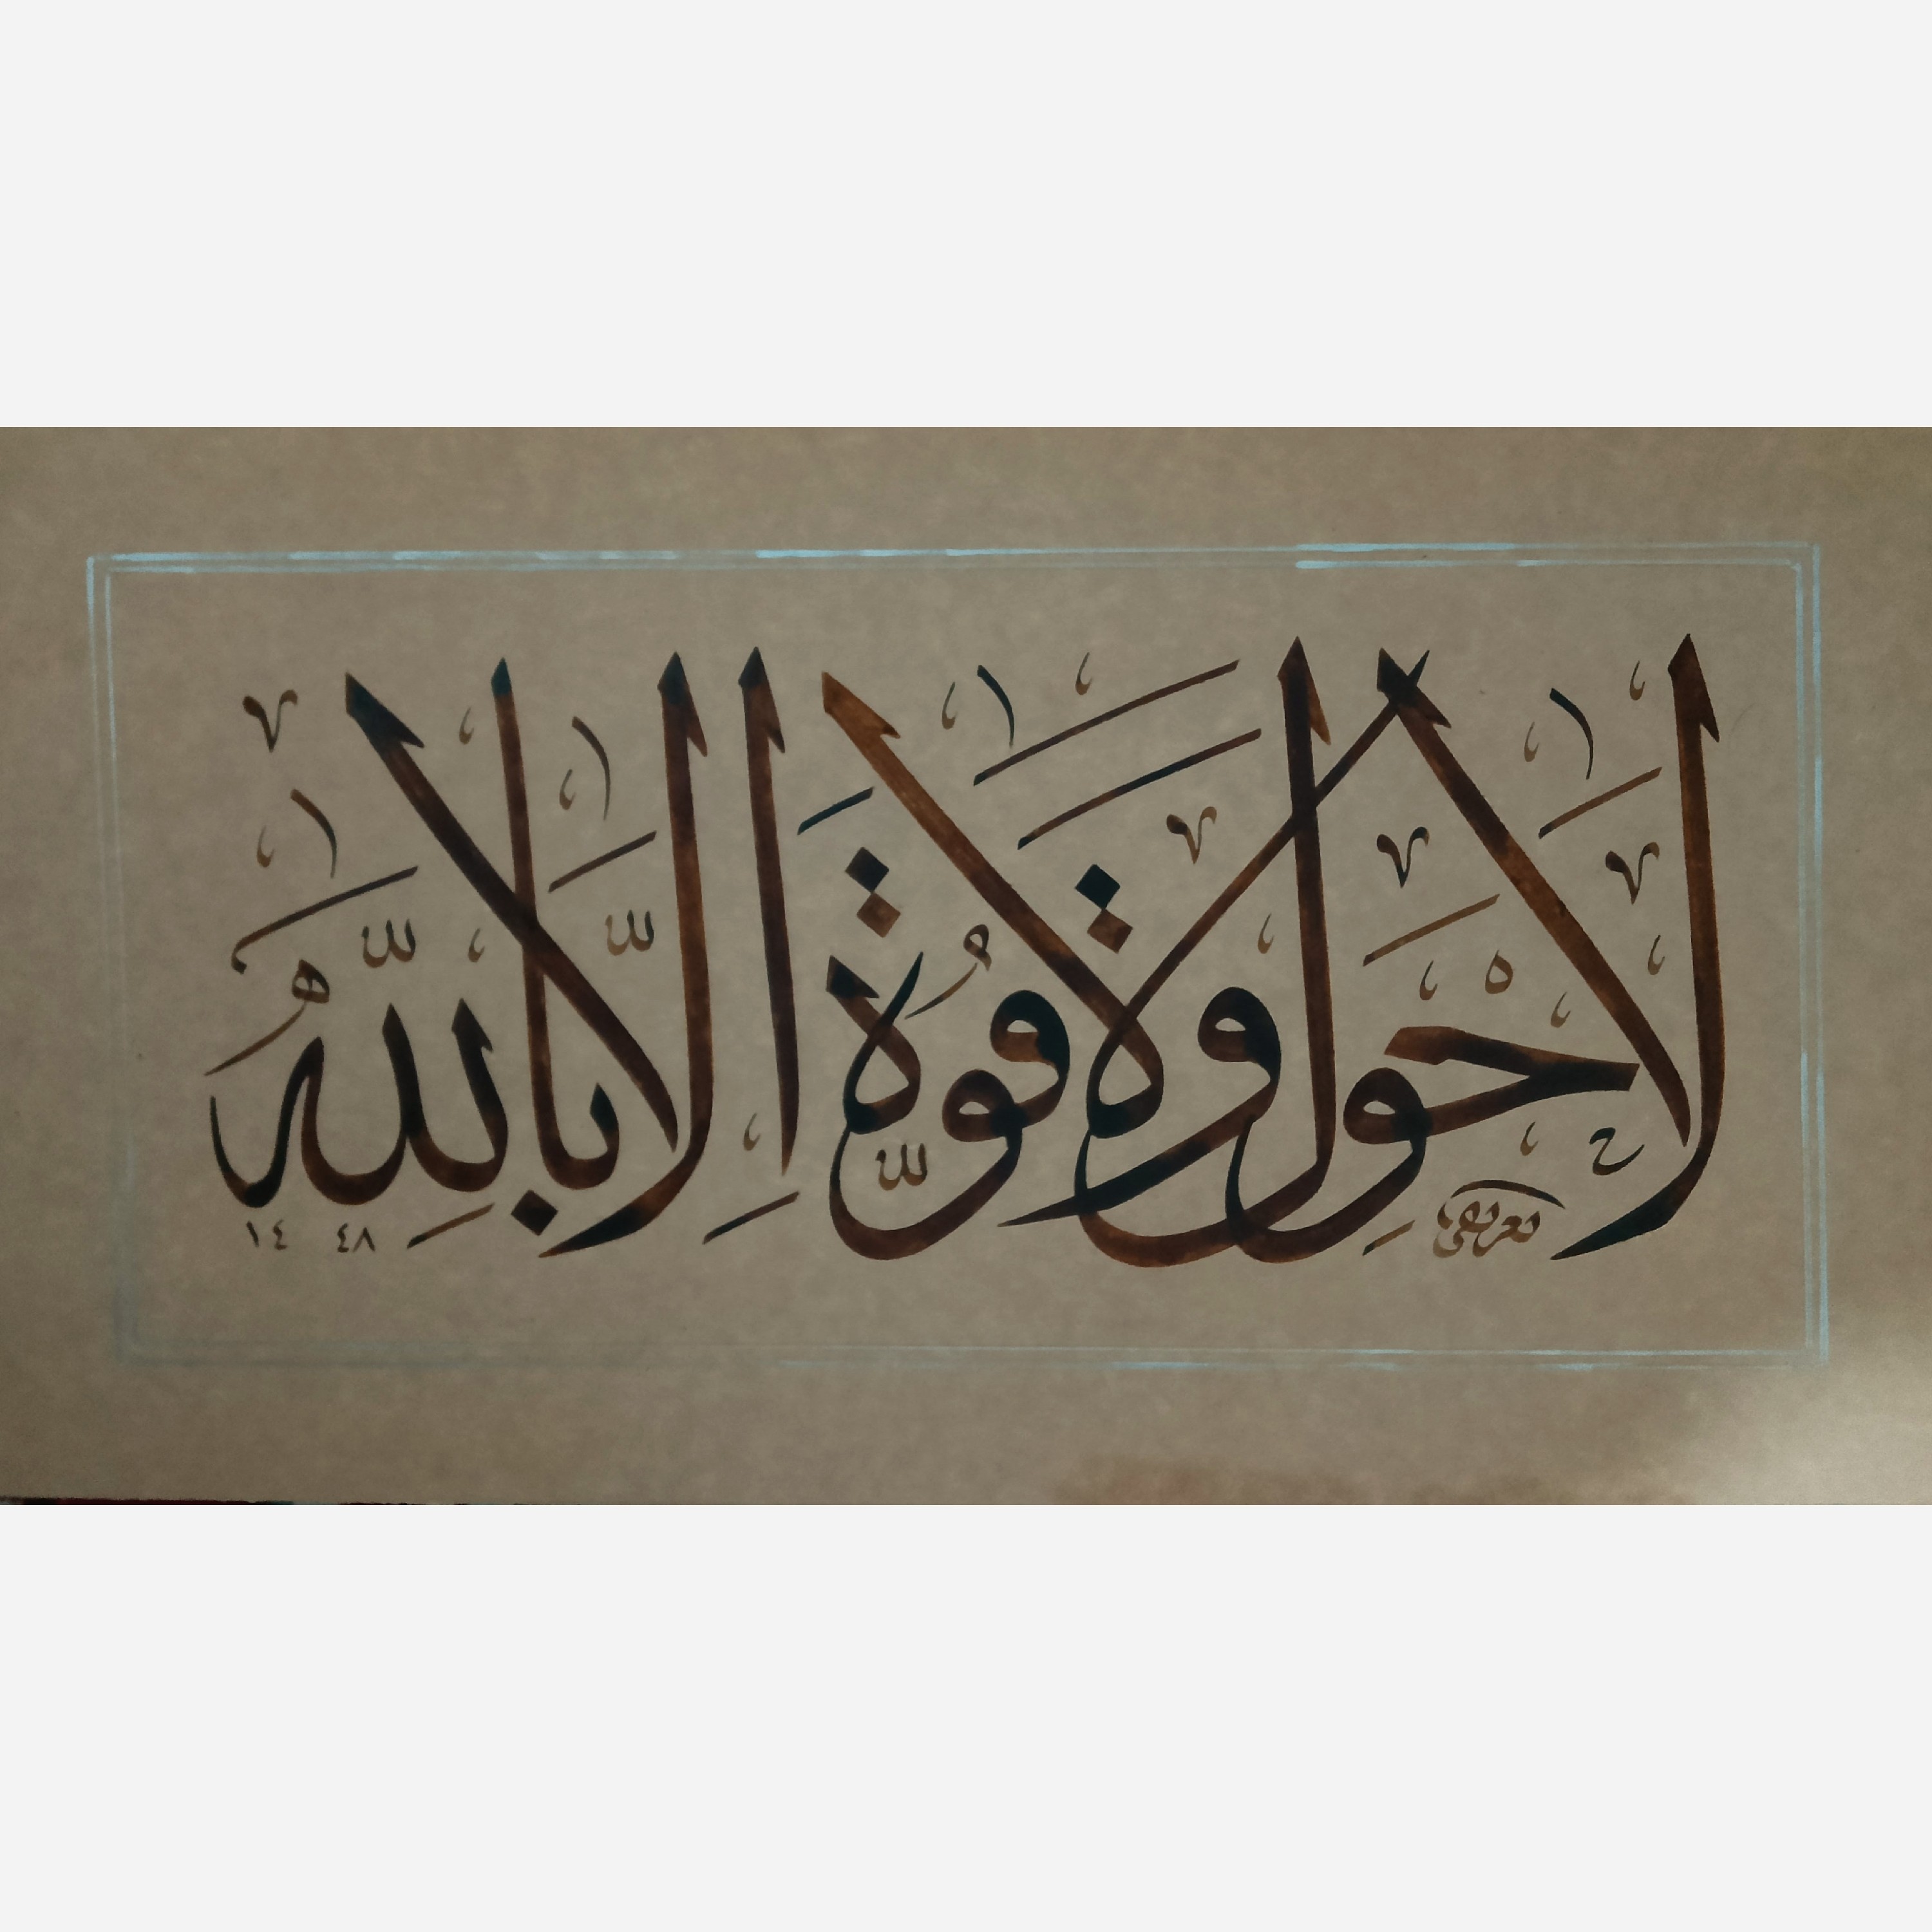 لَا حَوْلَ وَلَا قُوَّةَ إِلَّا بِاللّٰهِ
١٤٤٨